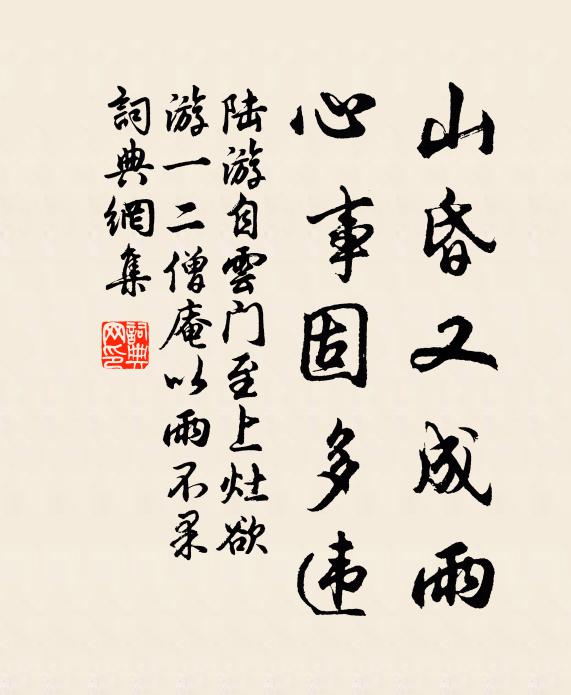 山昏又成雨
心事固多违
陆游自雲门至上灶欲
游一二僧庵以雨不果
詞典網集
詞典网印